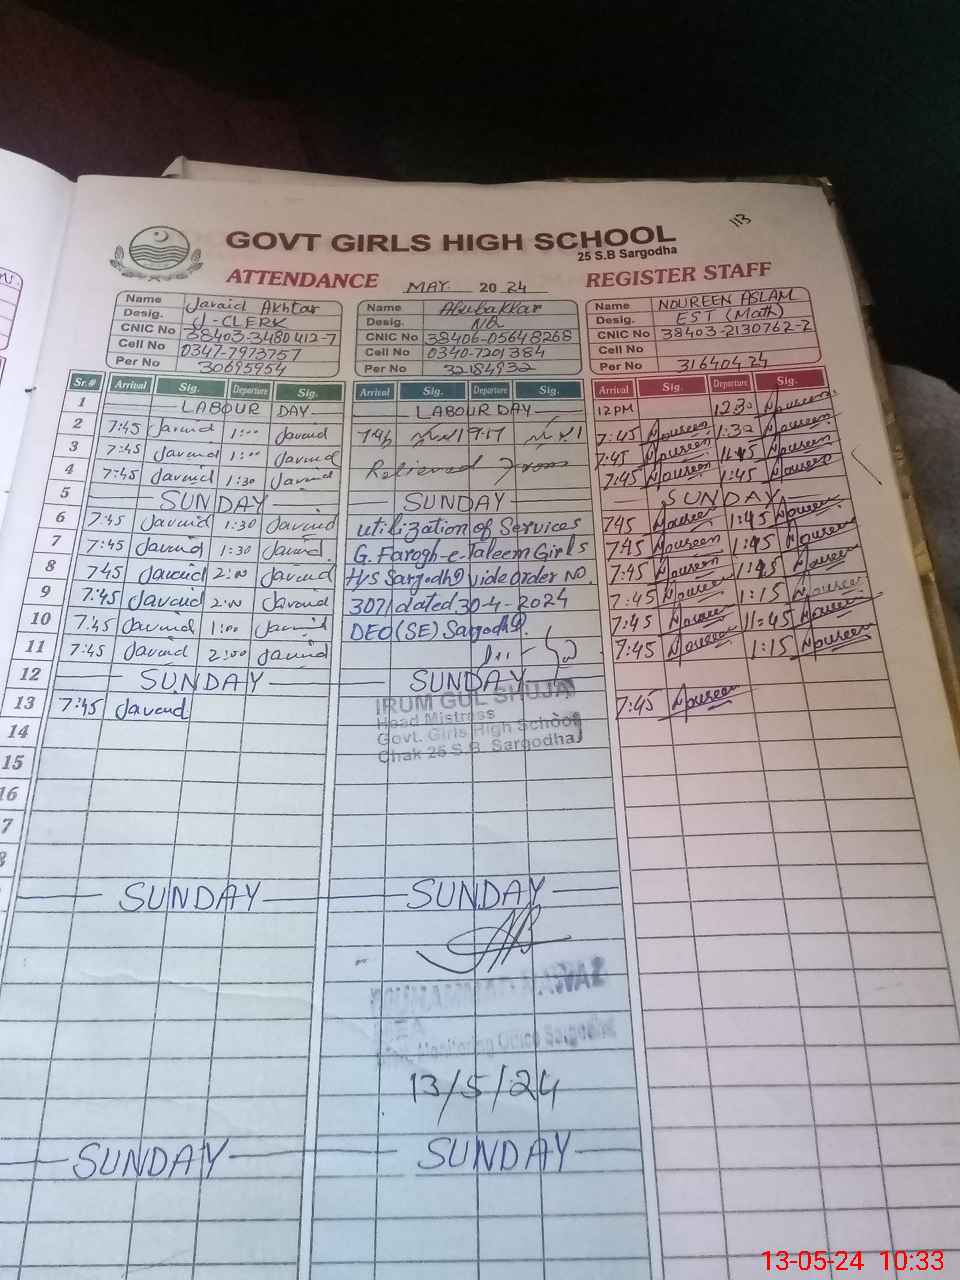 113
GOVT GIRLS HIGH SCHOOL
25 S.B Sargodha
ATTENDANCE REGISTER STAFF
MAY 2024
Name Javaid Akhtar Name Abubakkar Name NOUREEN ASLAM
Desig. J-CLERK Desig. NQ Desig. EST (Math)
CNIC No 38403-3480412-7 CNIC No 38406-05648268 CNIC No 38403-2130762-2
Cell No 0347-7973757 Cell No 0340-7201384 Cell No
Per No 30695954 Per No 32184932 Per No 31640424
Sr.# Arrival Sig. Departure Sig. Arrival Sig. Departure Sig. Arrival Sig. Departure Sig.
1 LABOUR DAY LABOUR DAY 12 PM 12 30 Noureen
2 7:45 Javaid 1:00 Javaid 7:45 Noureen 1:30 Noureen
3 7:45 Javaid 1:00 Javaid Relieved From 7:45 Noureen 1:45 Noureen
4 7:45 Javaid 1:30 Javaid 7:45 Noureen 1:45 Noureen
5 SUNDAY SUNDAY SUNDAY
6 7:45 Javaid 1:30 Javaid utilization of Services 745 Noureen 1:45 Noureen
7 7:45 Javaid 1:30 Javaid G. Farogh-e-Taleem Girls 7:45 Noureen 1:45 Noureen
8 745 Javaid 2:00 Javaid H/S Sargodha vide order NO. 7:45 Noureen 1:45 Noureen
9 7:45 Javaid 2:00 Javaid 307/dated 30-4-2024 7:45 Noureen 1:15 Noureen
10 7:45 Javaid 1:00 Javaid DEO(SE) Sargodha. 7:45 Noureen 11:45 Noureen
11 7:45 Javaid 2:00 Javaid 7:45 Noureen 1:15 Noureen
12 SUNDAY SUNDAY
13 7:45 Javaid 7:45 Noureen
IRUM GUL SHUJA
Head Mistress
Govt. Girls High School
Chak 25 S.B. Sargodha
14
15
16
7
SUNDAY SUNDAY
13/5/24
SUNDAY SUNDAY
13-05-24 10:33